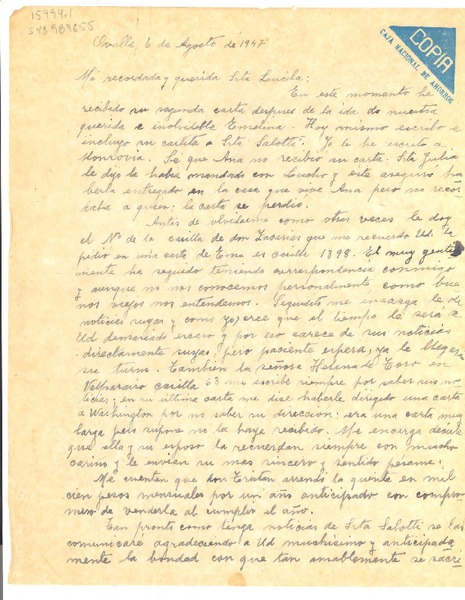 15444.1
SYS 989655
COPIA
CAJA NACIONAL DE AHORROS
Ovalle, 6 de Agosto de 1947
Mi recordada y querida Srta Lucila:
En este momento he
recibido su segunda carta despues de la ida de nuestra
querida e inolvidable Emelina. Hoy mismo escribo e
incluyo su cartita a Srta Salotti. Yo le he escrito a
Monrovia. Se que Ana no recibió su carta. Srta Julia
le dijo de haber mandado con Lucho y este aseguró ha-
berla entregado en la casa que vive Ana pero no recor-
daba a quien. la carta se perdió.
Antes de olvidarme como otras veces le doy
el Nº de la casilla de don Zacarias que me recuerda Ud. la
pedía en una carta de Eme es casilla 1898. El muy gentil
mente ha seguido teniendo correspondencia conmigo
y aunque no nos conocemos personalmente como bue
nos viejos nos entendemos. Seguido me encarga le dé
noticias suyas y como yo, cree que el tiempo le será a
Ud demasiado escaso y por eso carece de sus noticias
directamente suyas, pero paciente espera, ya le llegará
su turno. Tambien la señora Helena de Toso en
Valparaiso casilla 63 me escribe siempre por saber sus no
ticias; en su última carta me dice haberle dirigido una carta
a Washington por no saber su direccion: era una carta muy
larga pero supone no la haya recibido. Me encarga decirle
que ella y su esposo la recuerdan siempre con mucho
cariño y le envian su mas sincero y sentido pésame.
Me cuentan que don Eratan arrendó la quinta en mil
cien pesos mensuales por un año anticipado con compro
miso de venderla al cumplir el año.
Tan pronto como tenga noticias de Srta Salotti se las
comunicaré agradeciendo a Ud muchísimo y anticipada
mente la bondad con que tan amablemente se sacri